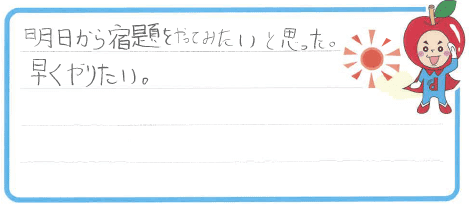 明日から宿題をやってみたいと思った。
早くやりたい。